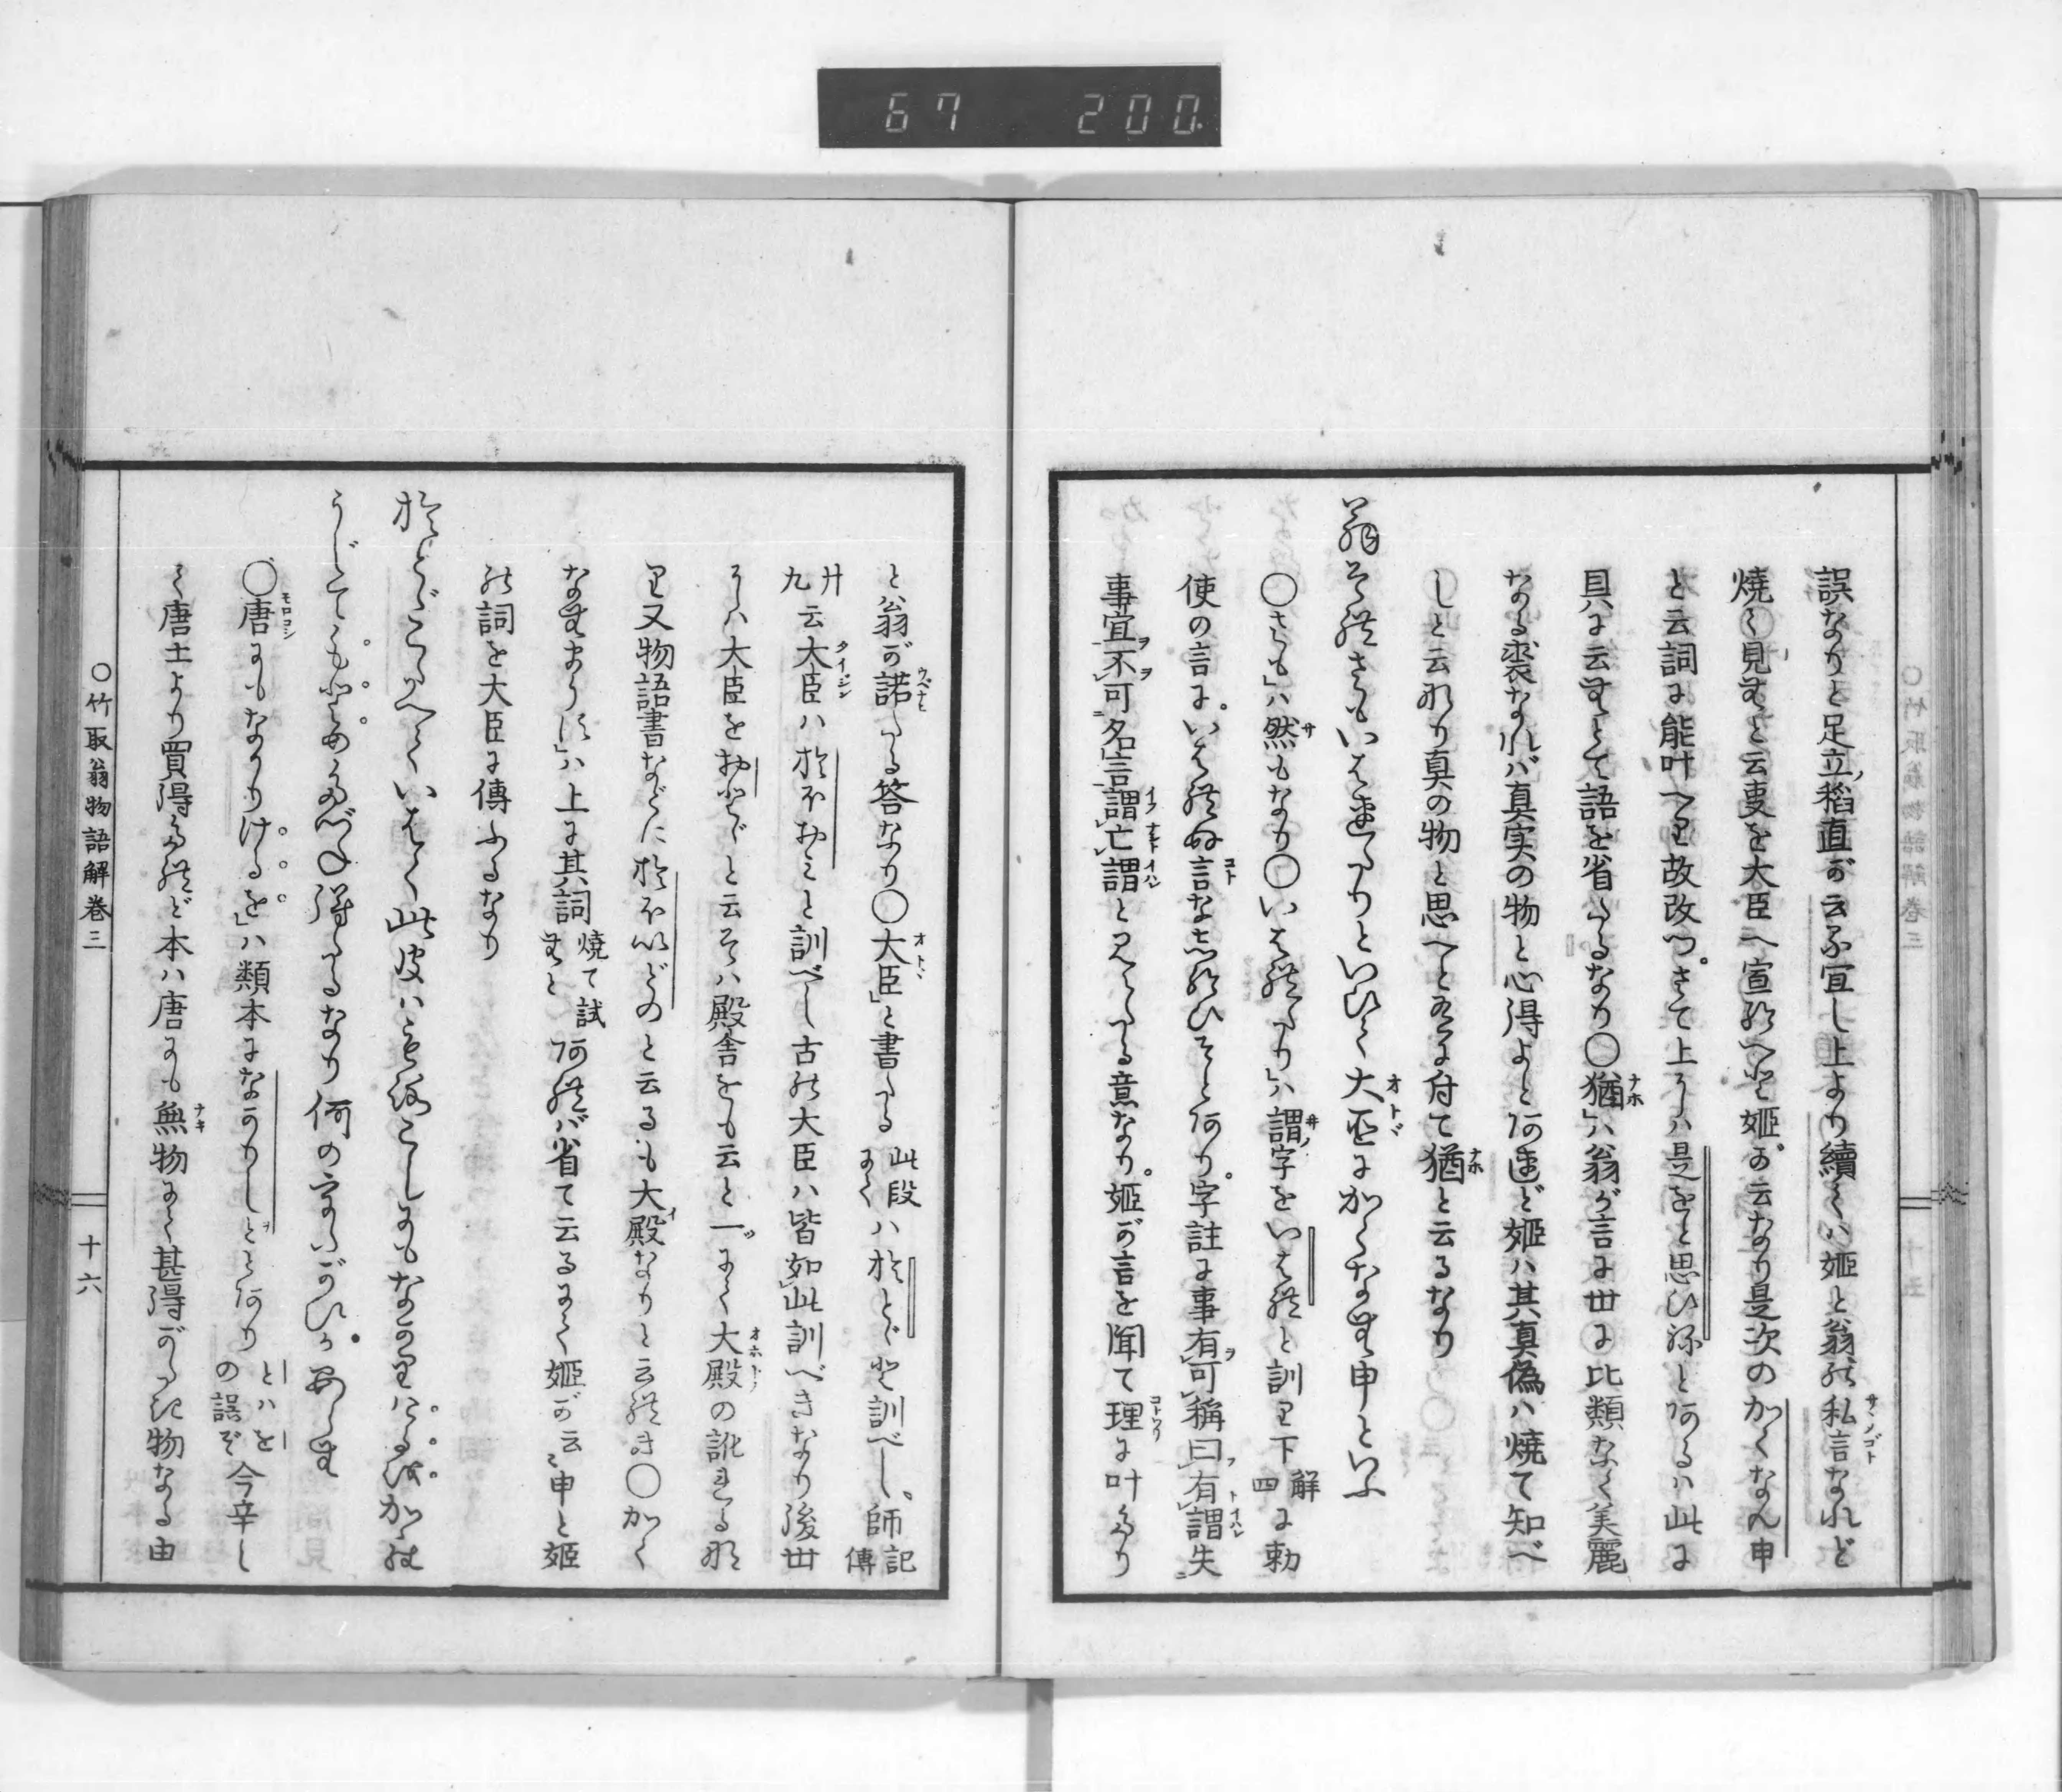 67 200.
誤なりと足立稻直が云る宜し上より續くハ姫と翁の私言なれど
焼く見むと云事を大臣へ宣給へと姫が云なり是次のかくなん申
と云詞に能叶へり故改つさて上にハ是をと思ひねとあるハ此に
具に云むとて語を省けるなり○猶」ハ翁が言に世に比類なく美麗
なる裘なれバ真実の物と心得よとあれど姫ハ其真偽ハ焼て知べ
しと云なり真の物と思へと云に付て猶と云るなり
翁それさもいはれたりといひて大臣にかくなむ申といふ
○さも」ハ然もなり○いはれたり」ハ謂字をいはれと訓り下解四に勅
使の言にいはれぬ言なし給ひそとあり字註に事有可稱曰有謂失
事宜不可名言謂亡謂と見えたる意なり姫が言を聞て理に叶へり
と翁が諾へる答なり○大臣」と書たる此段にてハおとゞと訓べし、師記傳
廿九云大臣ハおほおみと訓べし古の大臣ハ皆如此訓べきなり後世
にハ大臣をおとゞと云そハ殿舎をも云と一つにて大殿の訛れるな
り又物語書などにおほいどのと云るも大殿なりと云れき○かく
なむまうす」ハ上に其詞焼て試むとあれバ省て云るにて姫が云ゝ申と姫
の詞を大臣に傳ふるなり
おとゞこたへていはく此皮ハもろこしにもなかりけるをから
うじてもとめたづね得たるなり何のうたがひかあらむ
○唐にもなかりけるを」ハ類本になかりしとゝありとハをの誤ぞ今辛し
て唐土より買得たれど本ハ唐にも無物にて甚得がたき物なる由
○竹取翁物語解卷三
十六